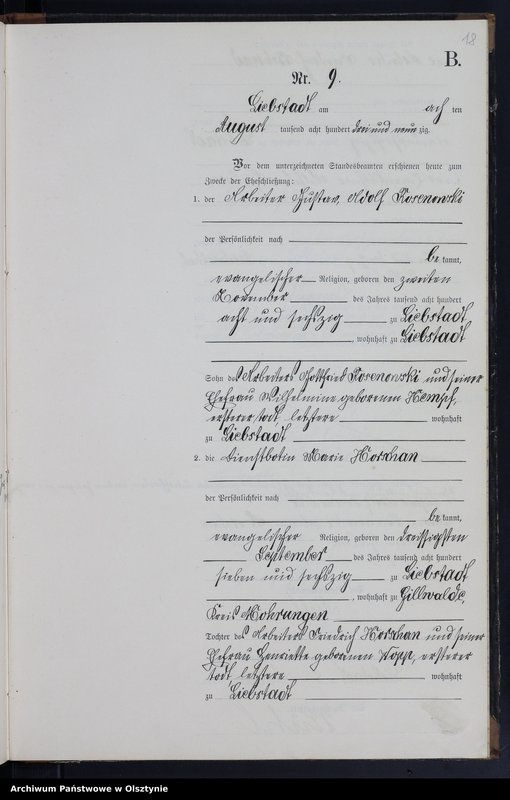 18
B.
Nr. 9.
Liebstadt am acht ten
August tausend acht hundert drei und neun zig.
Vor dem unterzeichneten Standesbeamten erschienen heute zum
Zwecke der Eheschließung:
1. der Arbeiter Gustav, Adolf Rosenowski
der Persönlichkeit nach
be kannt,
evangelischer Religion, geboren den zweiten
November des Jahres tausend acht hundert
acht und sechszig zu Liebstadt
, wohnhaft zu Liebstadt
Sohn des Arbeiters Gottfried Rosenowski und seiner
Ehefrau Wilhelmine geborenen
ersterer todt, letztere wohnhaft
zu Liebstadt
2. die Dienstbotin Marie Horschan
der Persönlichkeit nach
be kannt,
evangelischer Religion, geboren den dreissigsten
September des Jahres tausend acht hundert
sieben und sechszig zu Liebstadt
, wohnhaft zu Gillwalde,
Kreis Mohrungen
Tochter des Arbeiters Friedrich Horschan und seiner
Ehefrau Henriette geborenen Kopp, ersterer
todt, letztere wohnhaft
zu Liebstadt
Archiwum Państwowe w Olsztynie